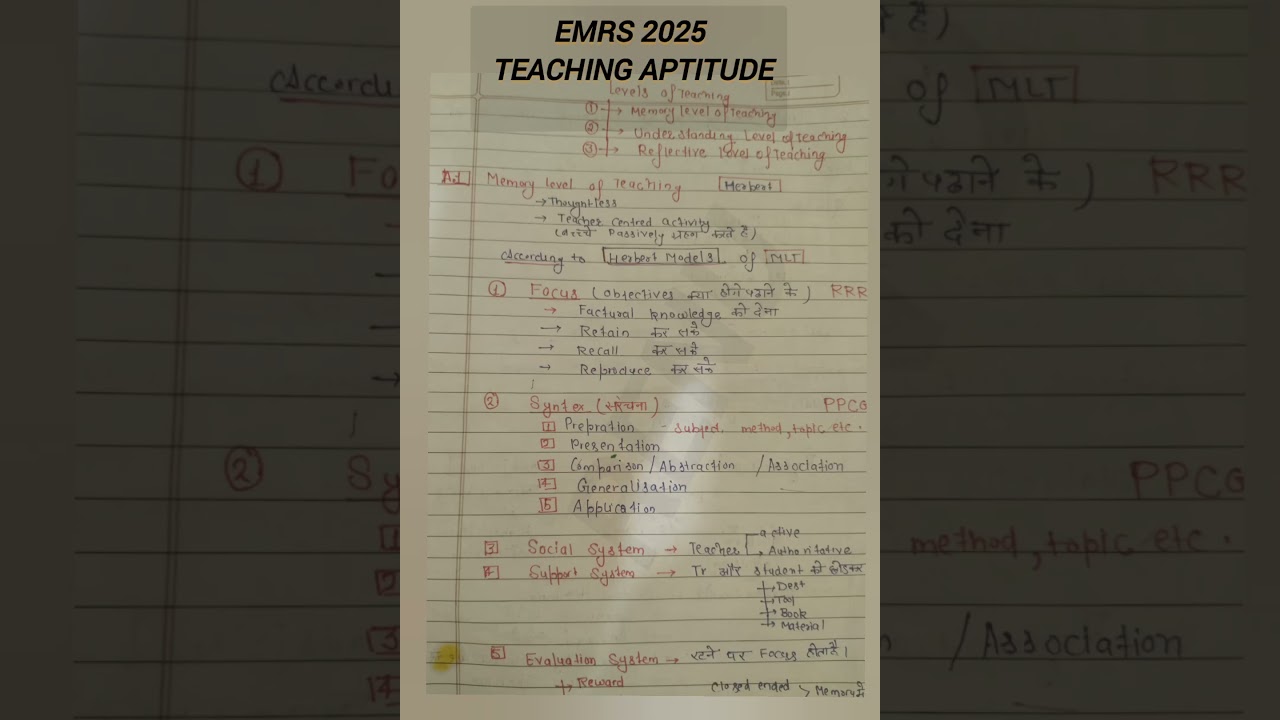 EMRS 2025
TEACHING APTITUDE
Levels of Teaching
① → Memory level of Teaching
② → Understanding Level of Teaching
③ → Reflective level of Teaching
A.1 Memory level of Teaching Herbert
→ Thoughtless
→ Teacher Centred activity
(बच्चे Passively ग्रहण करते है)
According to Herbert Models of MLT
① Focus (objectives क्या होंगे पढाने के) RRR
→ Factural knowledge को देना
→ Retain कर सके
→ Recall कर सकें
→ Reproduce कर सके
② Syntex (संरचना) PPCG
1 Prepration - subject, method, topic etc.
2 Presentation
3 Comparison / Abstraction / Association
4 Generalisation
5 Application
3 Social System → Teacher active
→ Authoritative
4 Support System → Tr और student को छोडकर
→ Book
→ Material
5 Evaluation System → रटने पर Focus होता है।
→ Reward closed ended → Memory में